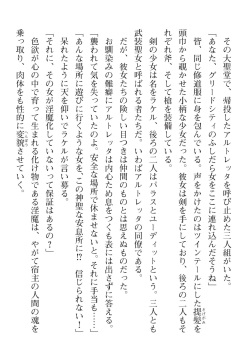 その大聖堂で、帰投したアルトレッタを呼び止めた三人組がいた。
「あなた、グリードシティのふしだらな女をここに連れ込んだそうね」
皆、同じ修道服に身を包んでいる。声をかけたのはツインテールにした提髪を
頭巾から覗かせた小柄な少女だった。彼女は剣を手にしており、後ろの二人もそ
れぞれ斧、そして槍を装備している。
剣の少女は名をラケル。後ろの二人はパラスとユーディットという。三人とも
武装聖女と呼ばれる者たちで、いわばアルトレッタの同僚である。
だが、彼女たちの険しい目つきは仲間に対するものとは思えぬものだった。
お馴染みの難癖にアルトレッタは内心で息をつくも表には出さずに答える。
「襲われて気を失っていたのよ。安全な場所で休ませないと。それに手当も……」
「あんな場所に遊びに行くような女を、この神聖な安息所に!? 信じられない!」
呆れたように天を仰いでラケルが言い募る。
「それに、その女が淫魔化していないって保証はあるの?」
色欲が心の中で育って生まれる化け物である淫魔は、やがて宿主の人間の魂を
乗っ取り、肉体をも性的に変貌させていく。